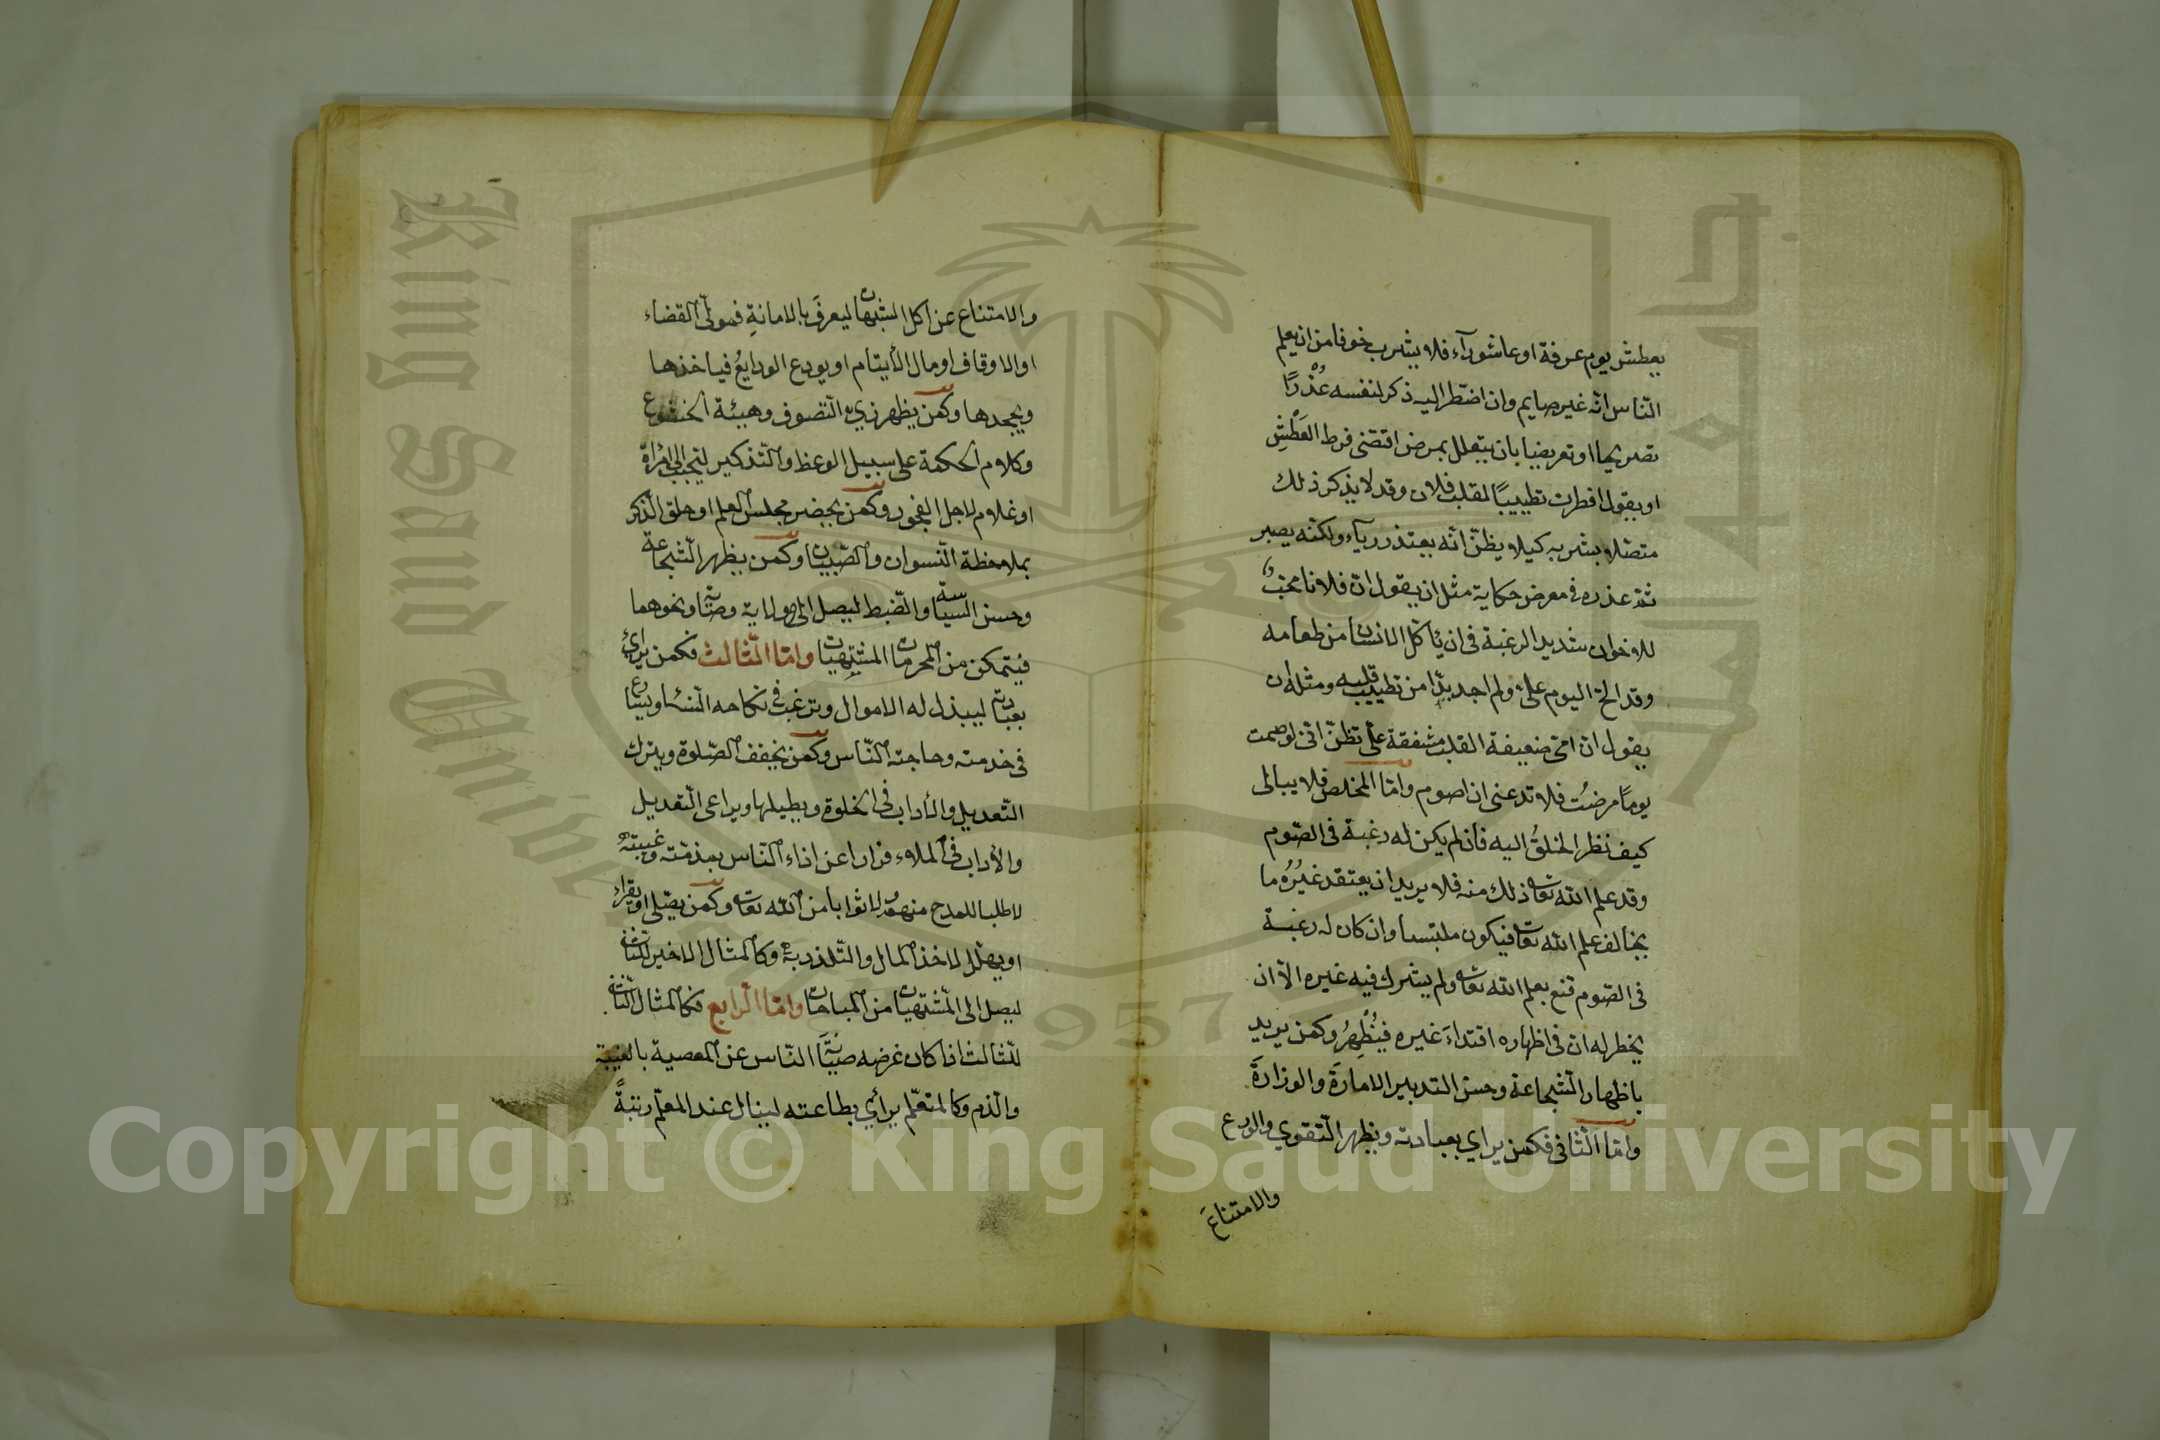 يعطش يوم عرفة او عاشورآء فلا يشرب خوفا من ان يعلم
النّاس انّه غير صايم وان اضطر اليه ذكر لنفسه عُذْرًا
تصريحا او تعريضا بان يتعلل بمرض اقتضى فرط العَطَشِ
او يقول افطرت تطييبًا لقلب فلان وقد لا يذكر ذلك
متصلا بشربه كيلا يظنّ انّه يعتذر رياء ولكنّه يصبر
ثمّ عذره فى معرض حكاية مثل ان يقول انّ فلانا محبّ
للاخوان شديد الرغبة فى ان يأكل الانسان من طعامه
وقد الحّ اليوم علىّ ولم اجد بدّا من تطييب قلبه ومثله ان
يقول ان امى ضعيفة القلب مشفقة علىّ تظنّ انّى لو صمت
يوماً مرضتُ فلا تدعنى ان اصوم وامّا المخلص فلا يبالى
كيف نظر الخلقُ اليه فان لم يكن له رغبة فى الصّوم
وقد علم الله تعالى ذلك منه فلا يريد ان يعتقد غيرُه ما
يخالف علم الله تعالى فيكون ملبتسا وان كان له رغبة
فى الصّوم قنع بعلم الله تعالى ولم يشرك فيه غيره الّا ان
يخطر له ان فى اظهاره اقتداءَ غيره فيُظْهِرُ وكمن يريد
باظهار الشّجاعة وحسن التدبير الامارةَ والوزارةَ
وامّا الثّانى فكمن يراي بعبادته ويظهر التّقوي والورع
والامتناعَ
والامتناع عن اكل الشبهات ليعرفَ بالامانةِ فيولّى القضاء
او الاوقاف او مال الأيتام او يودع الودايعُ فياخذها
ويجحدها وكمن يظهر زي التّصوف وهيئة الخشوع
وكلام الحكمة على سبيل الوعظ والتّذكير ليتحبب الى امْرأة
او غلام لاجل الفجور وكمن يحضر مجلس العلم او حلق الذّكر
بملاحظة النّسوان والصّبيان وكمن يظهر الشّجاعة
وحسن السياسة والضّبط ليصل الى ولاية وصاية ونحوهما
فيتمكن من المحرمات المشتهيات وامّا الثّالث فكمن يرايُ
بعبادته ليبذل له الاموال وترغب فى نكاحه النّساء ويسارع
فى خدمته وحاجته النّاس وكمن يخفف الصّلوة ويترك
التّعديل والأداب فى الخلوة ويطيلها ويراعى التّعديل
والأداب فى الملاء فرارا عن اذاء النّاس بمذمّته وغيبته
لا طلبا للمدح منهم ولا ثوابا من الله تعالى وكمن يصّلى او يقراء
او يهلّل لاخذ المال والتّلذذ به وكالمثال الاخير للثّانى
ليصل الى المشتهيات من المباحات وامّا الرّابع فكالمثال الثّانى
للثالث اذا كان غرضه صيانة النّاس عن المعصية بالغيبة
والذّم وكالمتعّلم يرأي بطاعته لينال عند المعلّم رتبةً
King Saud Univer
1957
Copyright © King Saud University